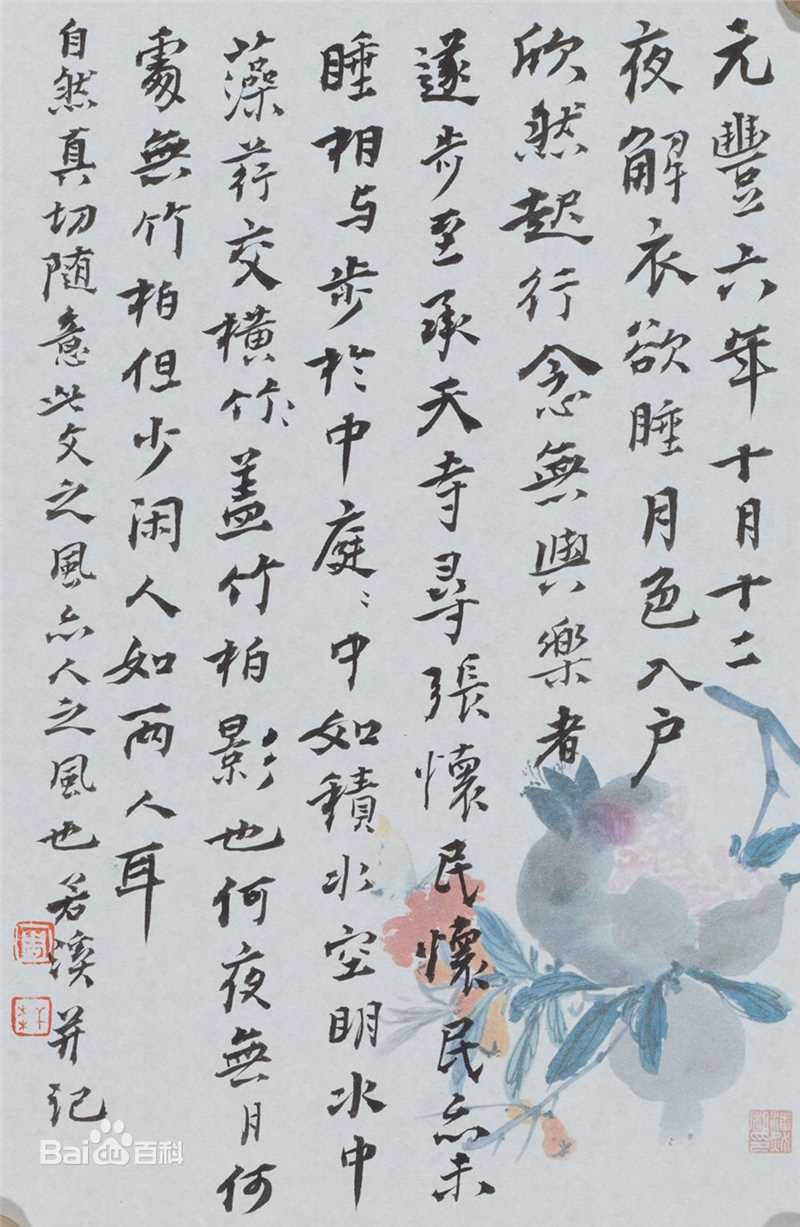 元豐六年十月十二
夜解衣欲睡月色入户
欣然起行念無與樂者
遂步至承天寺寻張懷民懷民亦未
睡相与步於中庭〻中如積水空明水中
藻荇交横竹〻蓋竹柏影也何夜無月何
處無竹柏但少闲人如兩人耳
自然真切随意此文之風亦人之風也若溪并记
Bai百科